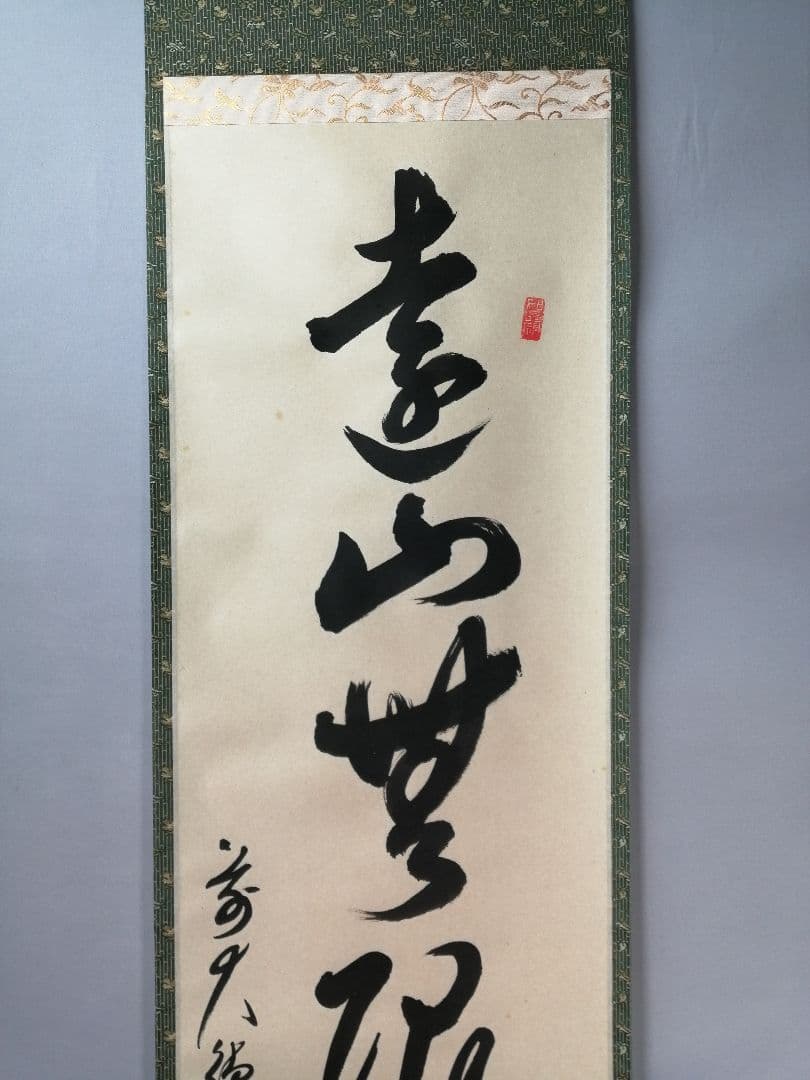 遠山無限
前大徳